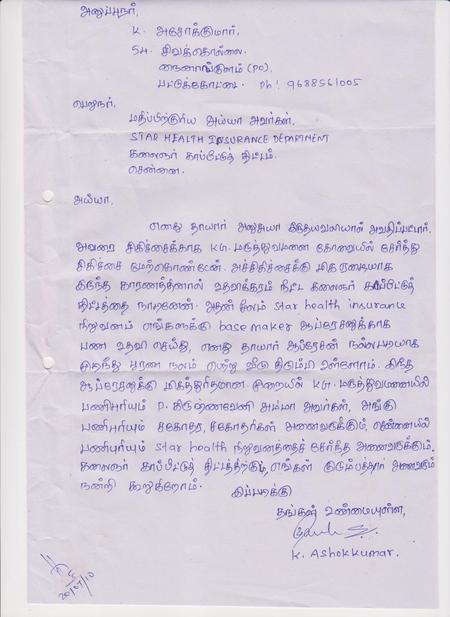 அனுப்புநர்,
K. அசோக்குமார்,
54. சிவக்கொல்லை.
(PO),
பட்டுக்கோட்டை. Ph: 9688561005
பெறுநர்,
மதிப்பிற்குரிய அய்யா அவர்கள்,
STAR HEALTH INSURANCE DEPARTMENT
கலைஞர் காப்பீட்டுத் திட்டம்.
சென்னை.
அய்யா,
எனது தாயார் அனுசுயா இருதயவலியால் அவதிப்பட்டார்.
அவரை சிகிச்சைக்காக KG. மருத்துவமனை கோவையில் சேர்த்து
சிகிச்சை மேற்கொண்டேன். அச்சிகிச்சைக்கு மிக
இருந்த காரணத்தினால் உதவிக்கரம் நீட்ட கலைஞர் காப்பீட்டுத்
திட்டத்தை நாடினேன். அதன் மூலம் star health insurance
நிறுவனம் எங்களுக்கு base maker ஆப்ரேசனுக்காக
பண உதவி செய்து, எனது தாயார் ஆப்ரேசன் நல்லபடியாக
முடிந்து பூரண நலம் பெற்று வீடு திரும்பி உள்ளோம். இந்த
ஆப்ரேசனுக்கு முறையில் KG. மருத்துவமனையில்
பணிபுரியும் P. கிருஷ்ணவேணி அம்மா அவர்கள், அங்கு
பணிபுரியும் சகோதர, சகோதரிகள் அனைவருக்கும், சென்னையில்
பணிபுரியும் star health நிறுவனத்தைச் சேர்ந்த அனைவருக்கும்,
கலைஞர் காப்பீட்டுத் திட்டத்திற்கும், எங்கள் குடும்பத்தார் அனைவரும்
நன்றி கூறுகிறோம்.
இப்படிக்கு
தங்கள் உண்மையுள்ள,
K. Ashokkumar.
20/07/10